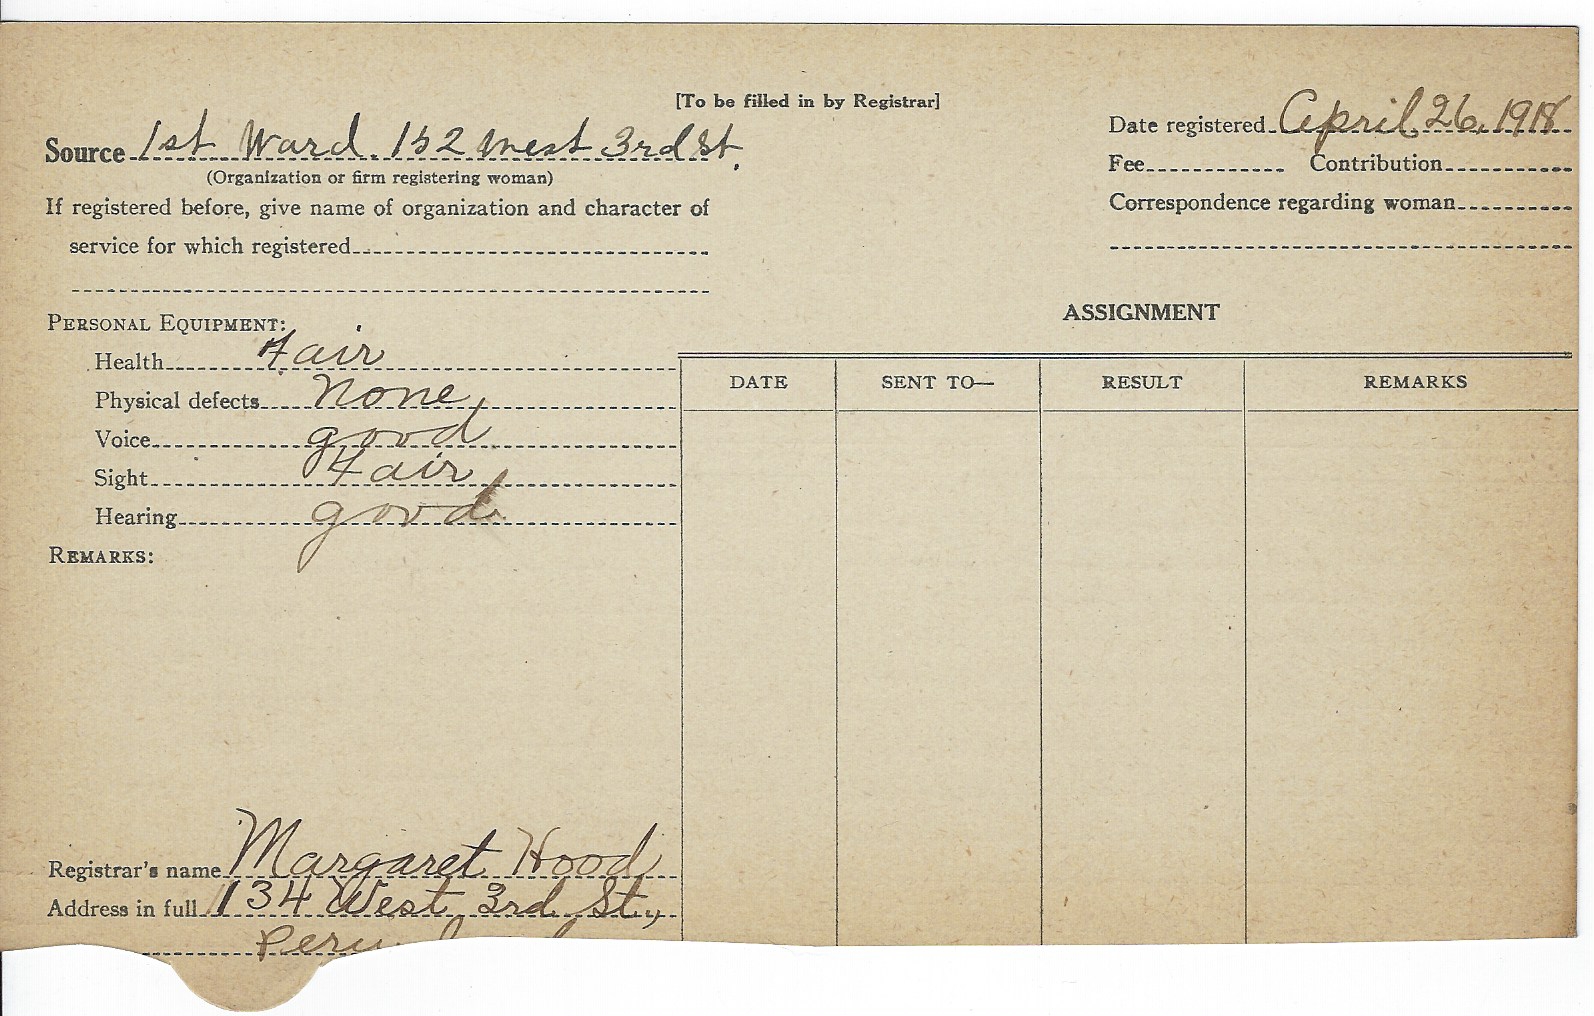 [To be filled in by Registrar]
Source 1st Ward. 152 West 3rd St.
(Organization or firm registering woman)
If registered before, give name of organization and character of
service for which registered
Date registered April 26, 1918
Fee Contribution
Correspondence regarding woman
PERSONAL EQUIPMENT:
Health Fair
Physical defects None
Voice good
Sight Fair
Hearing good
REMARKS:
ASSIGNMENT
DATE SENT TO— RESULT REMARKS
Registrar's name Margaret Hood
Address in full 134 West 3rd St.,
Peru